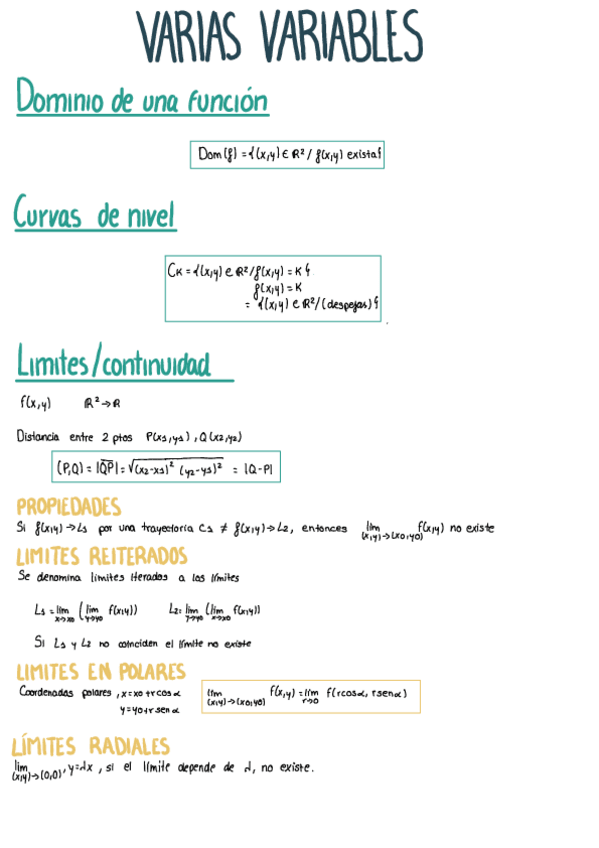 VARIAS VARIABLES
Dominio de una función
Dom(f) = {(x,y) ∈ R² / f(x,y) exista}
Curvas de nivel
CK = {(x,y) ∈ R² / f(x,y) = K}
f(x,y) = K
= {(x,y) ∈ R² / (despejas)}
Limites/continuidad
f(x,y) R² → R
Distancia entre 2 ptos P(x1,y1), Q(x2,y2)
(P,Q) = |QP| = √(x2-x1)² (y2-y1)² = |Q-P|
PROPIEDADES
Si f(x,y) → L1 por una trayectoria C1 ≠ f(x,y) → L2, entonces lim (x,y)→(x0,y0) f(x,y) no existe
LIMITES REITERADOS
Se denomina limites iterados a los límites
L1 = lim x→x0 (lim y→y0 f(x,y)) L2 = lim y→y0 (lim x→x0 f(x,y))
Si L1 y L2 no coinciden el límite no existe
LIMITES EN POLARES
Coordenadas polares, x = x0 + r cos α lim (x,y)→(x0,y0) f(x,y) = lim r→0 f(rcosα, rsenα)
y = y0 + r sen α
LÍMITES RADIALES
lim (x,y)→(0,0), y = λx, si el límite depende de λ, no existe.